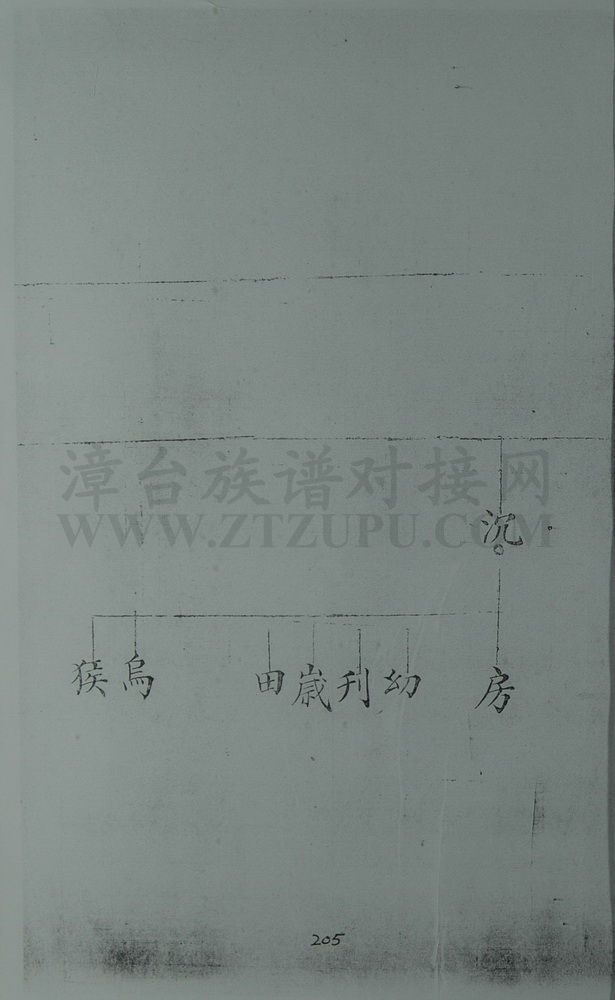 漳台族谱对接网
WWW.ZTZUPU.COM
沉
房
幼
刋
嵗
田
烏
猴
205